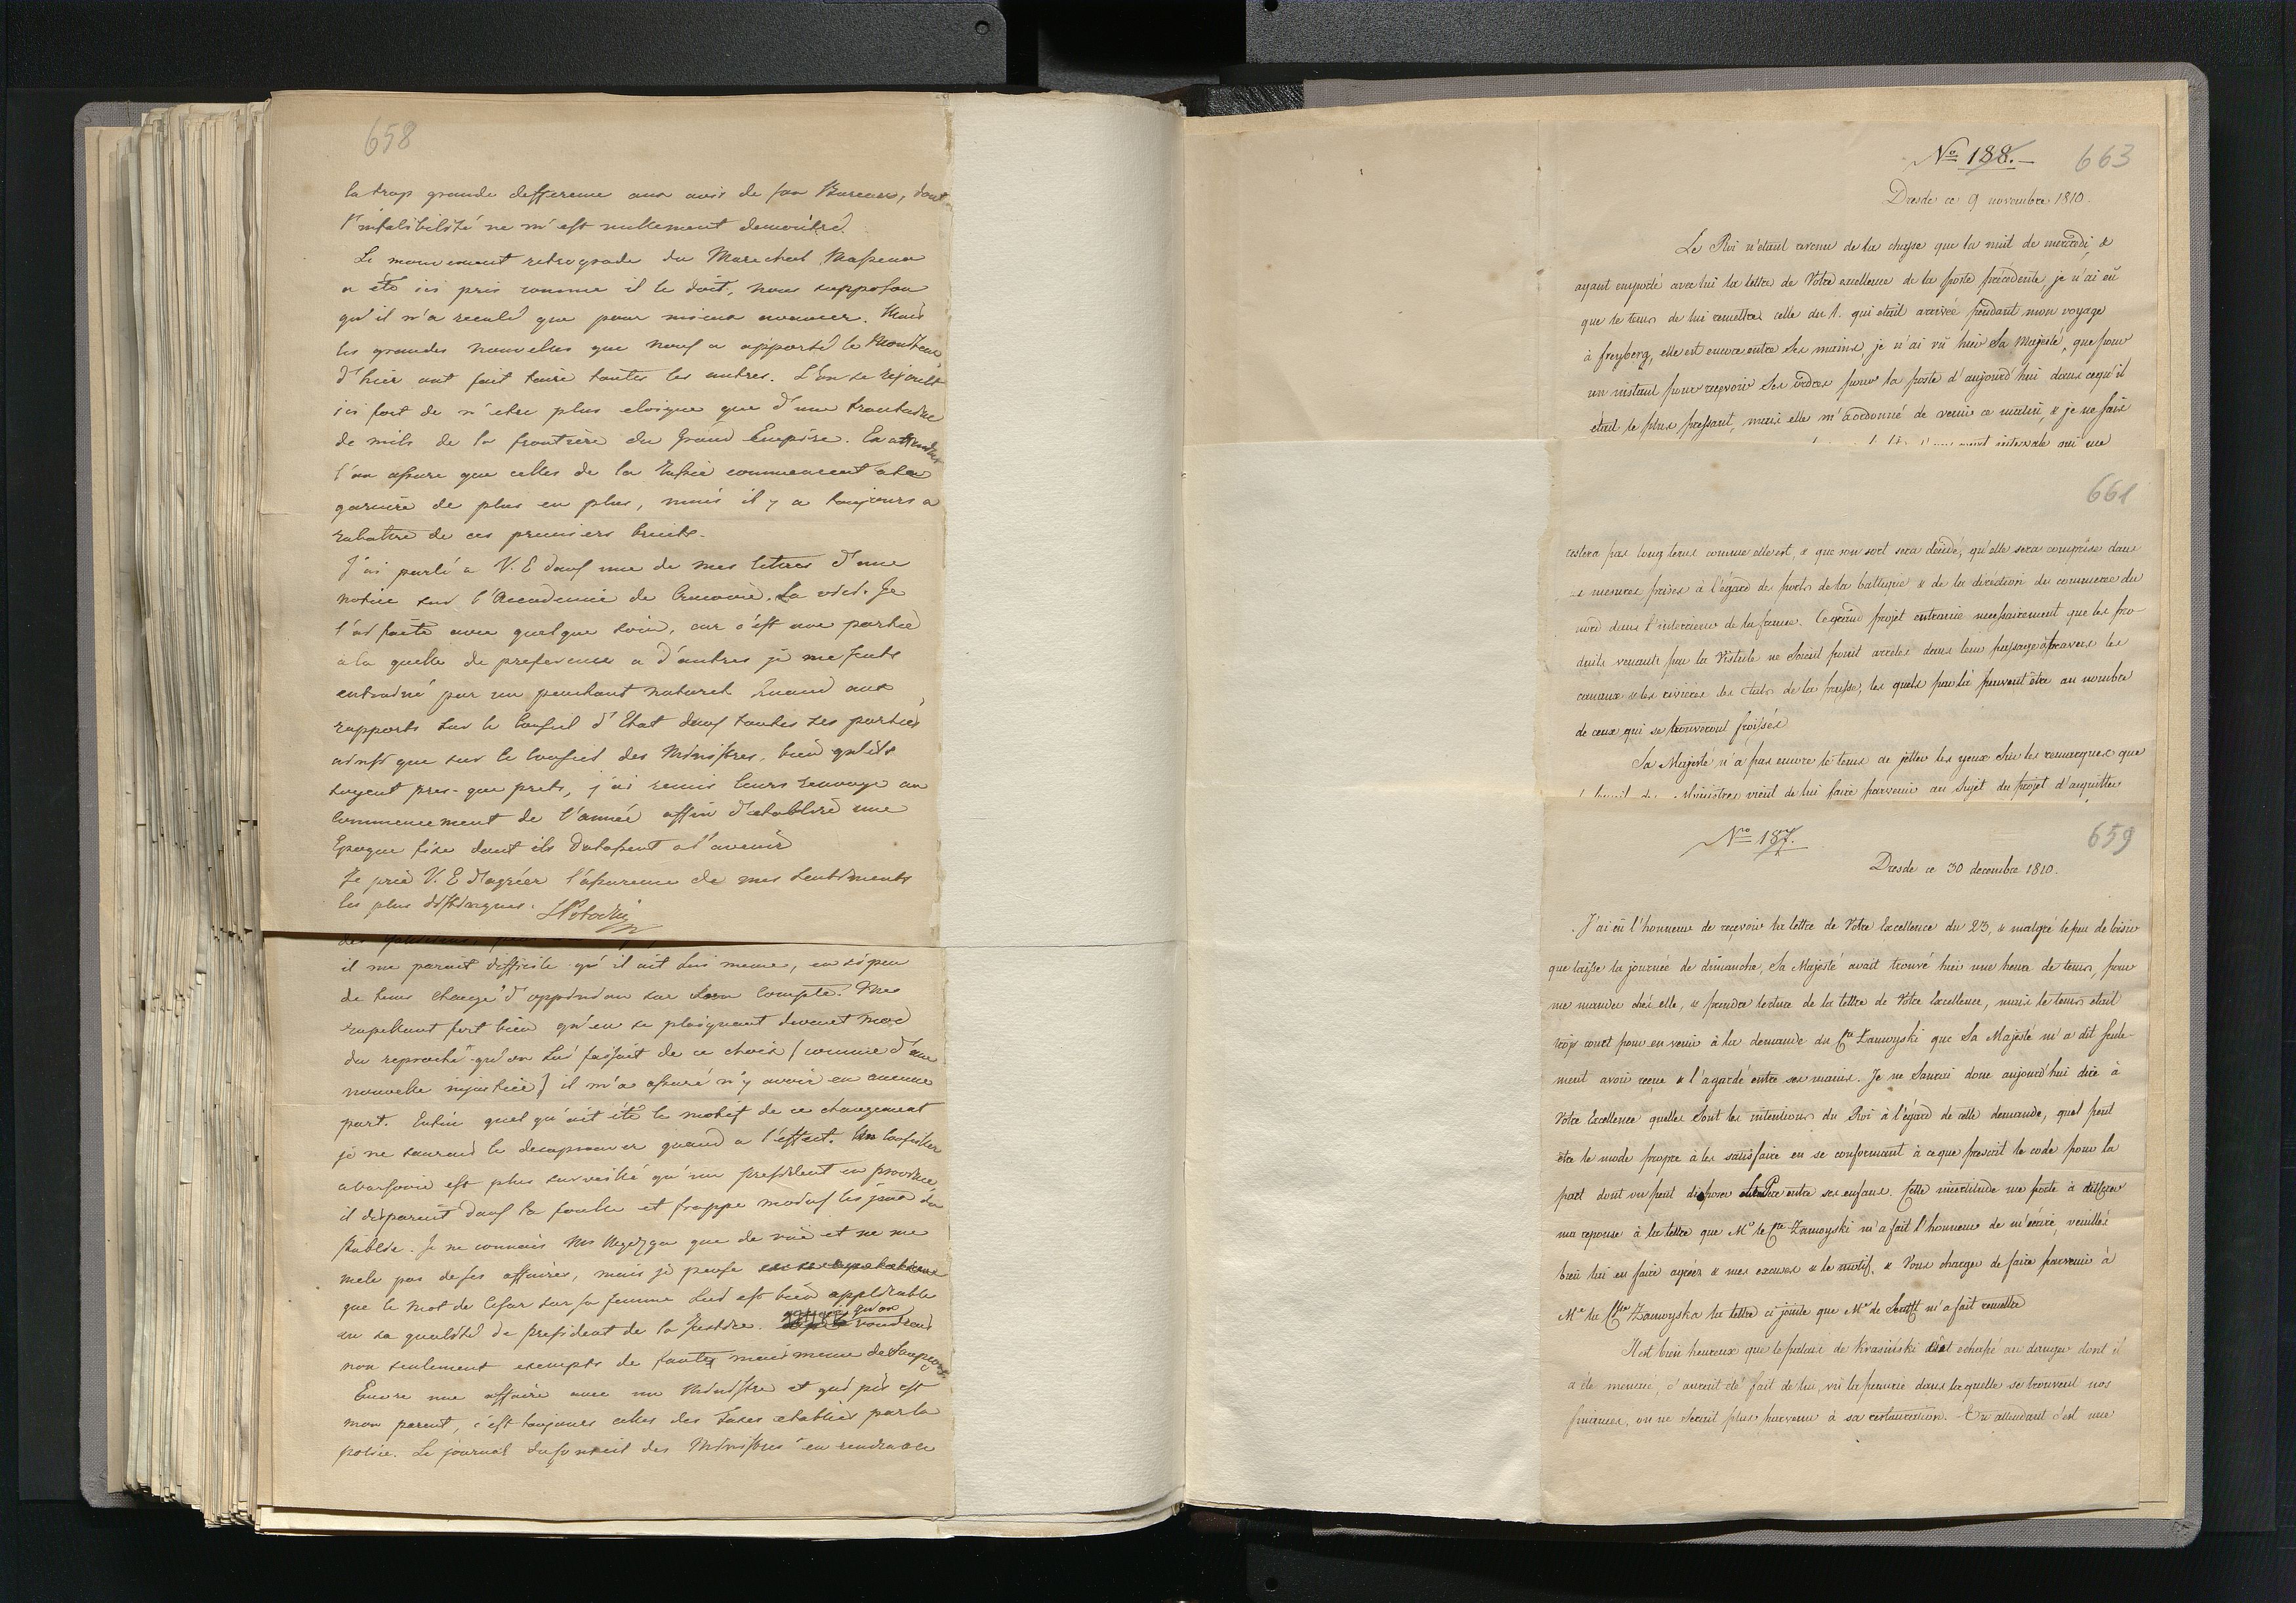 658
la trop grande defference aux avis de ses Bureaux, dont
l'infalibilité ne m'est nullement demontré.
Le mouvement retrograde du Marechal Massena
a été ici pris comme il le doit, nous supposons
qu'il n'a reculé que pour mieux avancer. Mais
les grandes nouvelles que nous a apporté le Moniteur
d'hier ont fait taire toutes les autres. L'on se rejouit
ici fort de n'etre plus eloigné que d'une trentaine
de mils de la frontiere du Grand Empire. En attendant
l'on assure que celles de la Russie commencent a se
garnire de plus en plus, mais il y a toujours a
rabattre de ces premiers bruits.
J'ai parlé a V. E dans une de mes lettres d'une
notice sur l'Academie de Cracovie. La voici. Je
l'ai faite avec quelque soin, car c'est une partie
a la quelle de preference a d'autres je me sents
entrainé par un penchant naturel Quand aux
rapports sur le Conseil d'Etat dans toutes ses parties,
ainsi que sur le Conseil des Ministres, bien qu'ils
soyent pres-que prets, j'ai remis leurs envoye au
commencement de l'année affin d'etablire une
Epoque fixe dont ils datassent a l'avenir
Je prie V. E d'agréer l'assurence de mes sentiments
les plus distingués. SPotocki
il me parait difficile qu'il ait lui meme, en si peu
de tems changé d'oppinion sur son compte. Me
rapellant fort bien qu'en se plaignant devant moi
du reproche qu'on lui faisait de ce choix (comme d'une
nouvelle injustice) il m'a assuré n'y avoir eu aucune
part. Enfin quel qu'ait été le motif de ce changement
je ne saurais le desaprouver quand a l'effect. Un Conseiller
a Varsovie est plus surveillé qu'un president en province,
il disparait dans la foule et frappe moins les yeux du
Public. Je ne connais Mr que de vue et ne me
mele pas de ses affaires, mais je pense
que le mot de Cesar sur sa femme lui est bien applicable
en sa qualité de president de la Justice. qu'on voudrait
non seulement exempts de fautes mais meme de Soupçons
Encore une affaire avec un Ministre et qui pis est
mon parent, c'est toujours celles des taxes etablies par la
police. Le journal du Conseil des Ministres en rendra a
No 188.
663
Dresde ce 9 novembre 1810.
Le Roi n'étant revenu de la chasse que la nuit de mercredi, &
ayant emporté avec lui la lettre de Votre excellence de la poste précédente, je n'ai eû
que le tems de lui remettre celle du 1. qui etait arrivée pendant mon voyage
à freyberg, elle est encore entre Ses mains, je n'ai vû hier Sa Majesté, que pour
un instant pour reçevoir Ses ordres pour la poste d'aujourd'hui dans ce qu'il
etait le plus pressant, mais elle m'a ordonné de venir ce matin, & je ne sais
661
restera pas long tems comme elle est, & que son sort sera decidé, qu'elle sera comprise dans
les mesures prises à l'égard des ports de la baltique & de la direction du commerce du
nord dans l'interieur de la france. Ce grand projet entraine necessairement que les pro-
duits venants par la Vistule ne soient point arretés dans leur passage à travers les
canaux & les rivieres des etats de la prusse, les quels par là peuvent être au nombre
de ceux qui se trouveront froissés.
Sa Majesté n'a pas encore le tems de jetter les yeux sur les remarques que
Ministres vient de lui faire parvenir au sujet du projet d'aquitter
No 187.
659
Dresde ce 30 decembre 1810.
J'ai eû l'honneur de reçevoir la lettre de Votre Excellence du 23, & malgré le peu de loisir
que laisse la journée de dimanche, Sa Majesté avait trouvé hier une heure de tems, pour
me mander chés elle, & prendre lecture de la lettre de Votre Excellence, mais le tems etait
trop court pour en venir à la demande du Cte Zamoyski que Sa Majesté m'a dit seule-
ment avoir reçue & l'a gardé entre ses mains. Je ne saurai donc aujourd'hui dire à
Votre Excellence quelles sont les intentions du Roi à l'égard de cette demande, quel peut
être le mode propre à les satisfaire en se conformant à ce que prescrit le code pour la
part dont un peut disposer entre ses enfans. Cette incertitude me porte à differer
ma reponse à la lettre que Mr le Cte Zamoyski m'a fait l'honneur de m'écrire, veuillés
bien lui en faire agréer & mes excuses & le motif, & Vous charger de faire parvenir à
Me la Ctsse Zamoyska la lettre ci jointe que Mr de Senfft m'a fait remettre
Il est bien heureux que le palais de Krasiński ait echapé au danger dont il
a été menacé, c'aurait été fait de lui, vû la penurie dans laquelle se trouvent nos
finances, on ne serait plus parvenu à sa restauration. En attendant c'est une